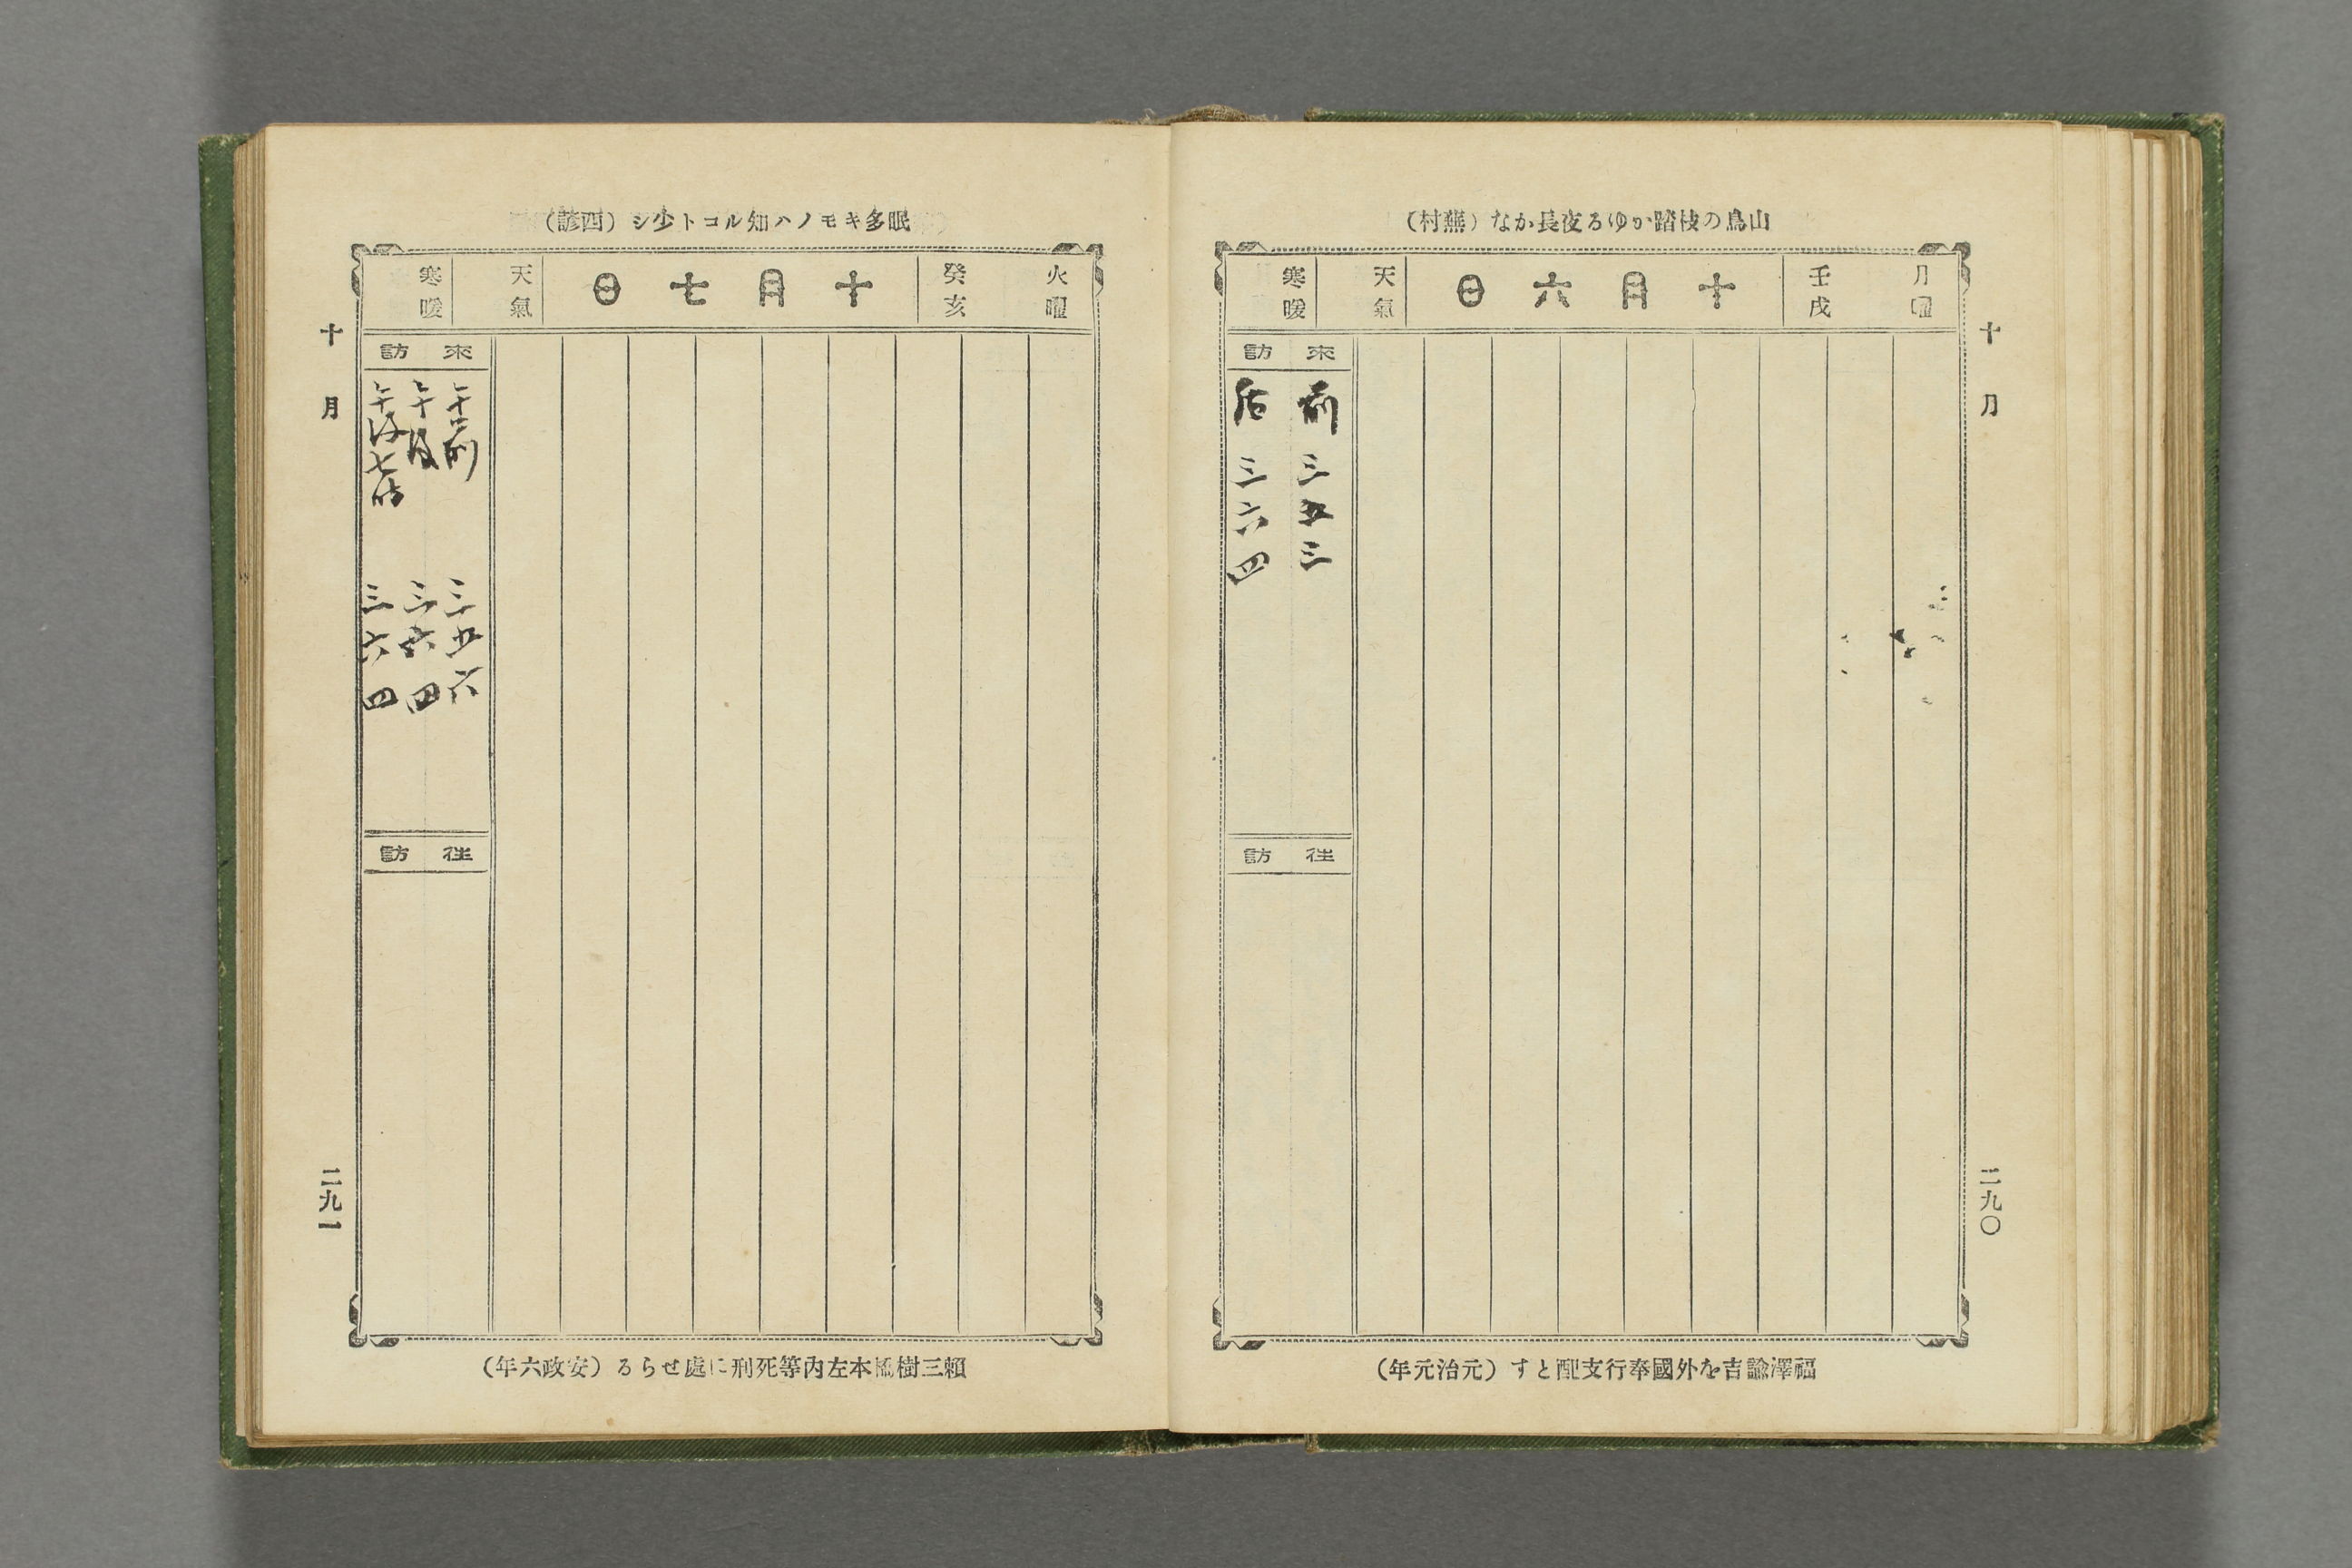 山鳥の枝踏かゆる夜長かな（蕪村）
月曜
壬戌
十月六日
天氣
寒暖
十月
二九〇
來訪
前 三五三
后 三六四
往訪
福澤諭吉を外國奉行支配とす（元治元年）
眠多キモノハ知ルコト少シ（西諺）
火曜
癸亥
十月七日
天氣
寒暖
來訪
午前 三五六
午后 三六四
午后七時 三六四
往訪
十月
二九一
頼三樹橋本左内等死刑に處せらる（安政六年）